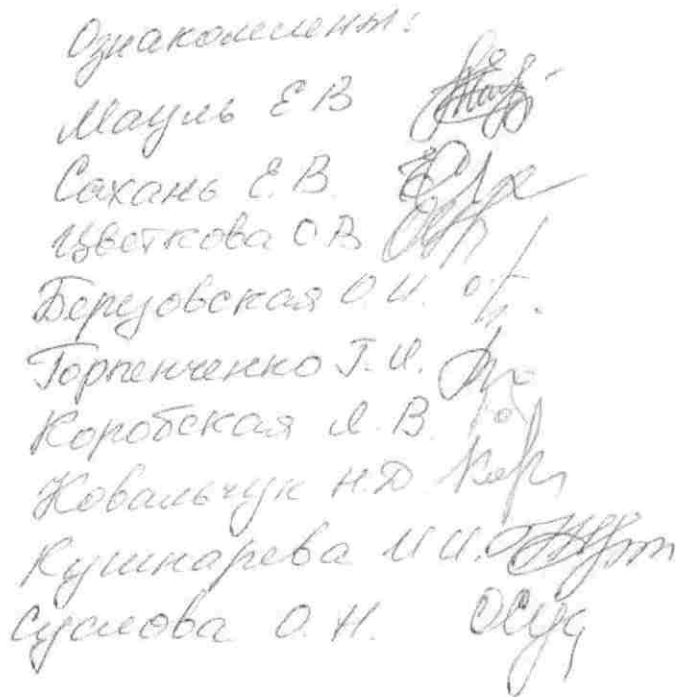 Ознакомлены:
Мауль Е В
Сахань Е. В.
Цветкова О.В
Березовская О. И.
Горпенченко Г. И.
Коробская Л. В.
Ковальчук Н.Д
Кушнарева И И.
Суслова О. Н.